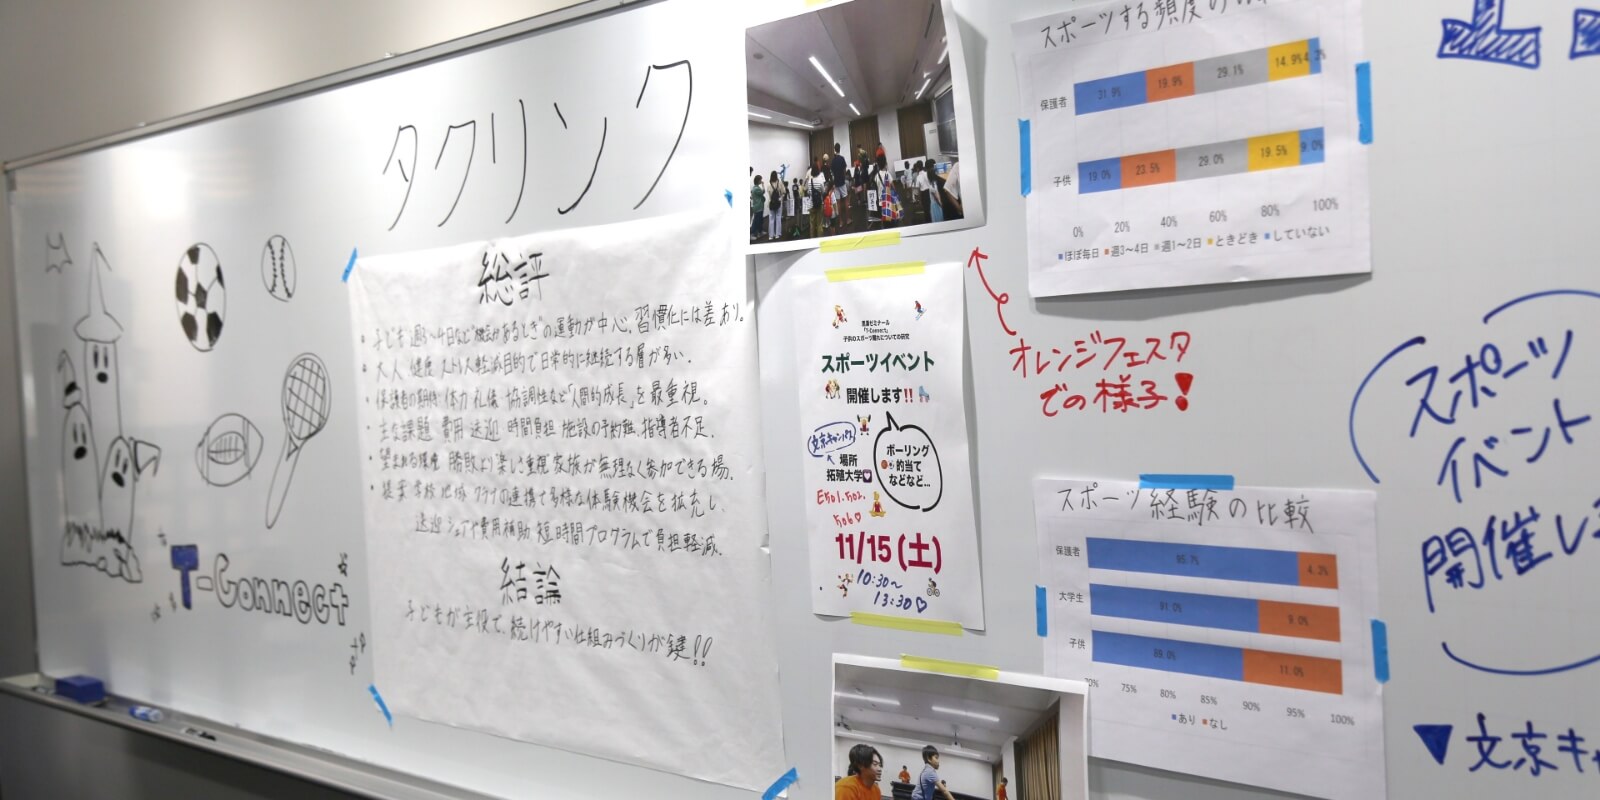 タクリンク
総評
・子ども 週3〜4日など"機会があるとき"の運動が中心、習慣化には差あり。
・大人 健康 ストレス軽減目的で日常的に継続する層が多い。
・保護者の期待 体力 礼儀 協調性など「人間的成長」を最重視。
・主な課題 費用 送迎 時間負担 施設の予約難、指導者不足。
・望まれる環境 勝敗より楽しさ重視 家族が無理なく参加できる場。
・提案 学校 地域 クラブの連携で多様な体験機会を拡充し、
送迎シェアや費用補助 短時間プログラムで負担軽減。
結論
子どもが主役で、続けやすい仕組みづくりが鍵!!
T-Connect
「T-Connect」
子供のスポーツ離れについての研究
スポーツイベント
開催します!!
文京キャンパス
場所
拓殖大学
E501.502.
506♡
ボーリング
的当て
などなど…
11/15(土)
10:30〜
13:30♡
オレンジフェスタ
での様子!
スポーツする頻度の
保護者 31.9% 19.9% 29.1% 14.9% 4.3%
子供 19.0% 23.5% 29.0% 19.5% 9.0%
0% 20% 40% 60% 80% 100%
ほぼ毎日 週3〜4日 週1〜2日 ときどき していない
スポーツ経験の比較
保護者 95.7% 4.3%
大学生 91.0% 9.0%
子供 89.0% 11.0%
70% 75% 80% 85% 90% 95% 100%
あり なし
スポーツ
イベント
開催し
▼文京キャ